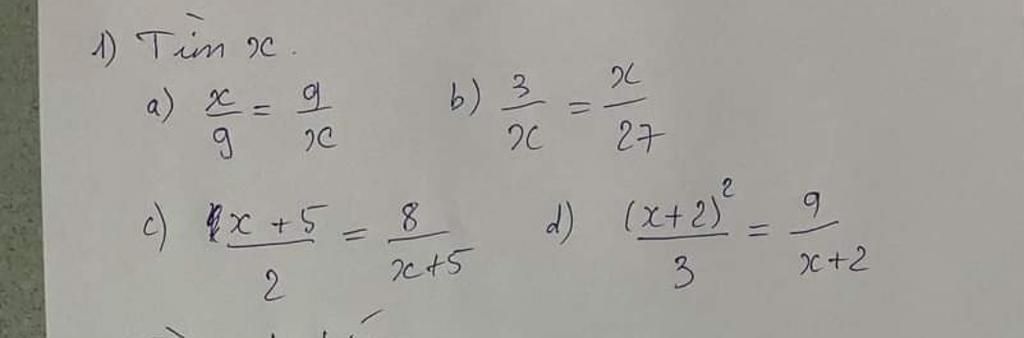 1) Tìm x.
a) x/9 = 9/x b) 3/x = x/27
c) x+5/2 = 8/x+5 d) (x+2)²/3 = 9/x+2